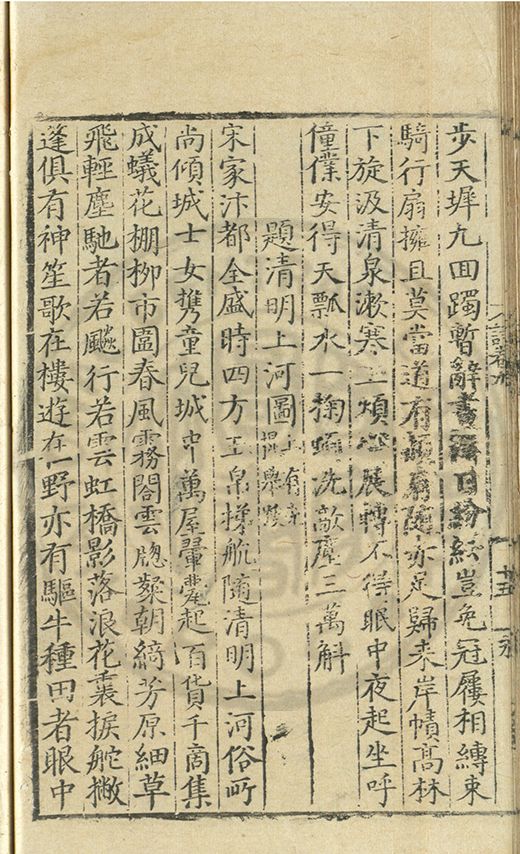 步天墀九回躅暫辭書日紛紜豈免冠屨相縛束
騎行扇擁且莫當道有亦足歸来岸幘髙林
下旋汲清泉漱寒玉煩展轉不得眠中夜起坐呼
僮僕安得天瓢水一掬洗敵塵三萬斛
題清明上河圖上有
宋家汴都全盛時四方玉帛梯航隨清明上河俗所
尚傾城士女携童兒城中萬屋翬甍起百貨千商集
成蟻花棚栁市圍春風霧閣雲牕粲朝綺芳原細草
飛輕塵馳者若飈行若雲虹橋影落浪花裏捩舵撇
篷俱有神笙歌在樓遊在野亦有驅牛種田者眼中
十五